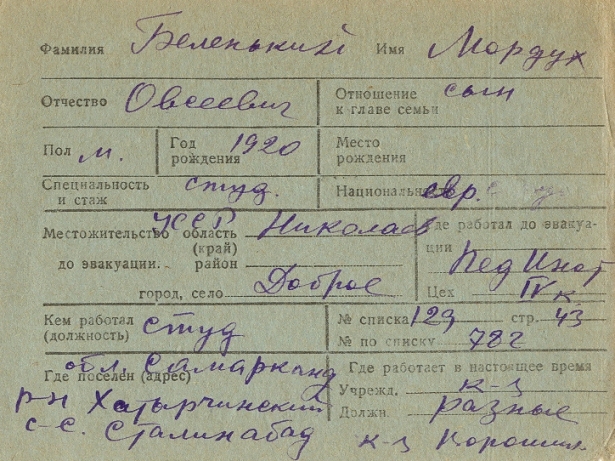 Фамилия Беленький Имя Мордух
Отчество Овсеевич Отношение к главе семьи сын
Пол м. Год рождения 1920 Место рождения
Специальность и стаж студ. Национальность евр.
Местожительство до эвакуации. УССР область (край) Николаев
район
город, село Доброе
Где работал до эвакуации Пед Инст
Цех IV к.
Кем работал (должность) студ
№ списка 129 стр. 43
№ по списку 782
Где поселен (адрес) обл. Самарканд
р-н Хатырчинский
с-с. Сталинабад
Где работает в настоящее время
Учрежд. к-з
Должн. разные
к-з Ворошил.